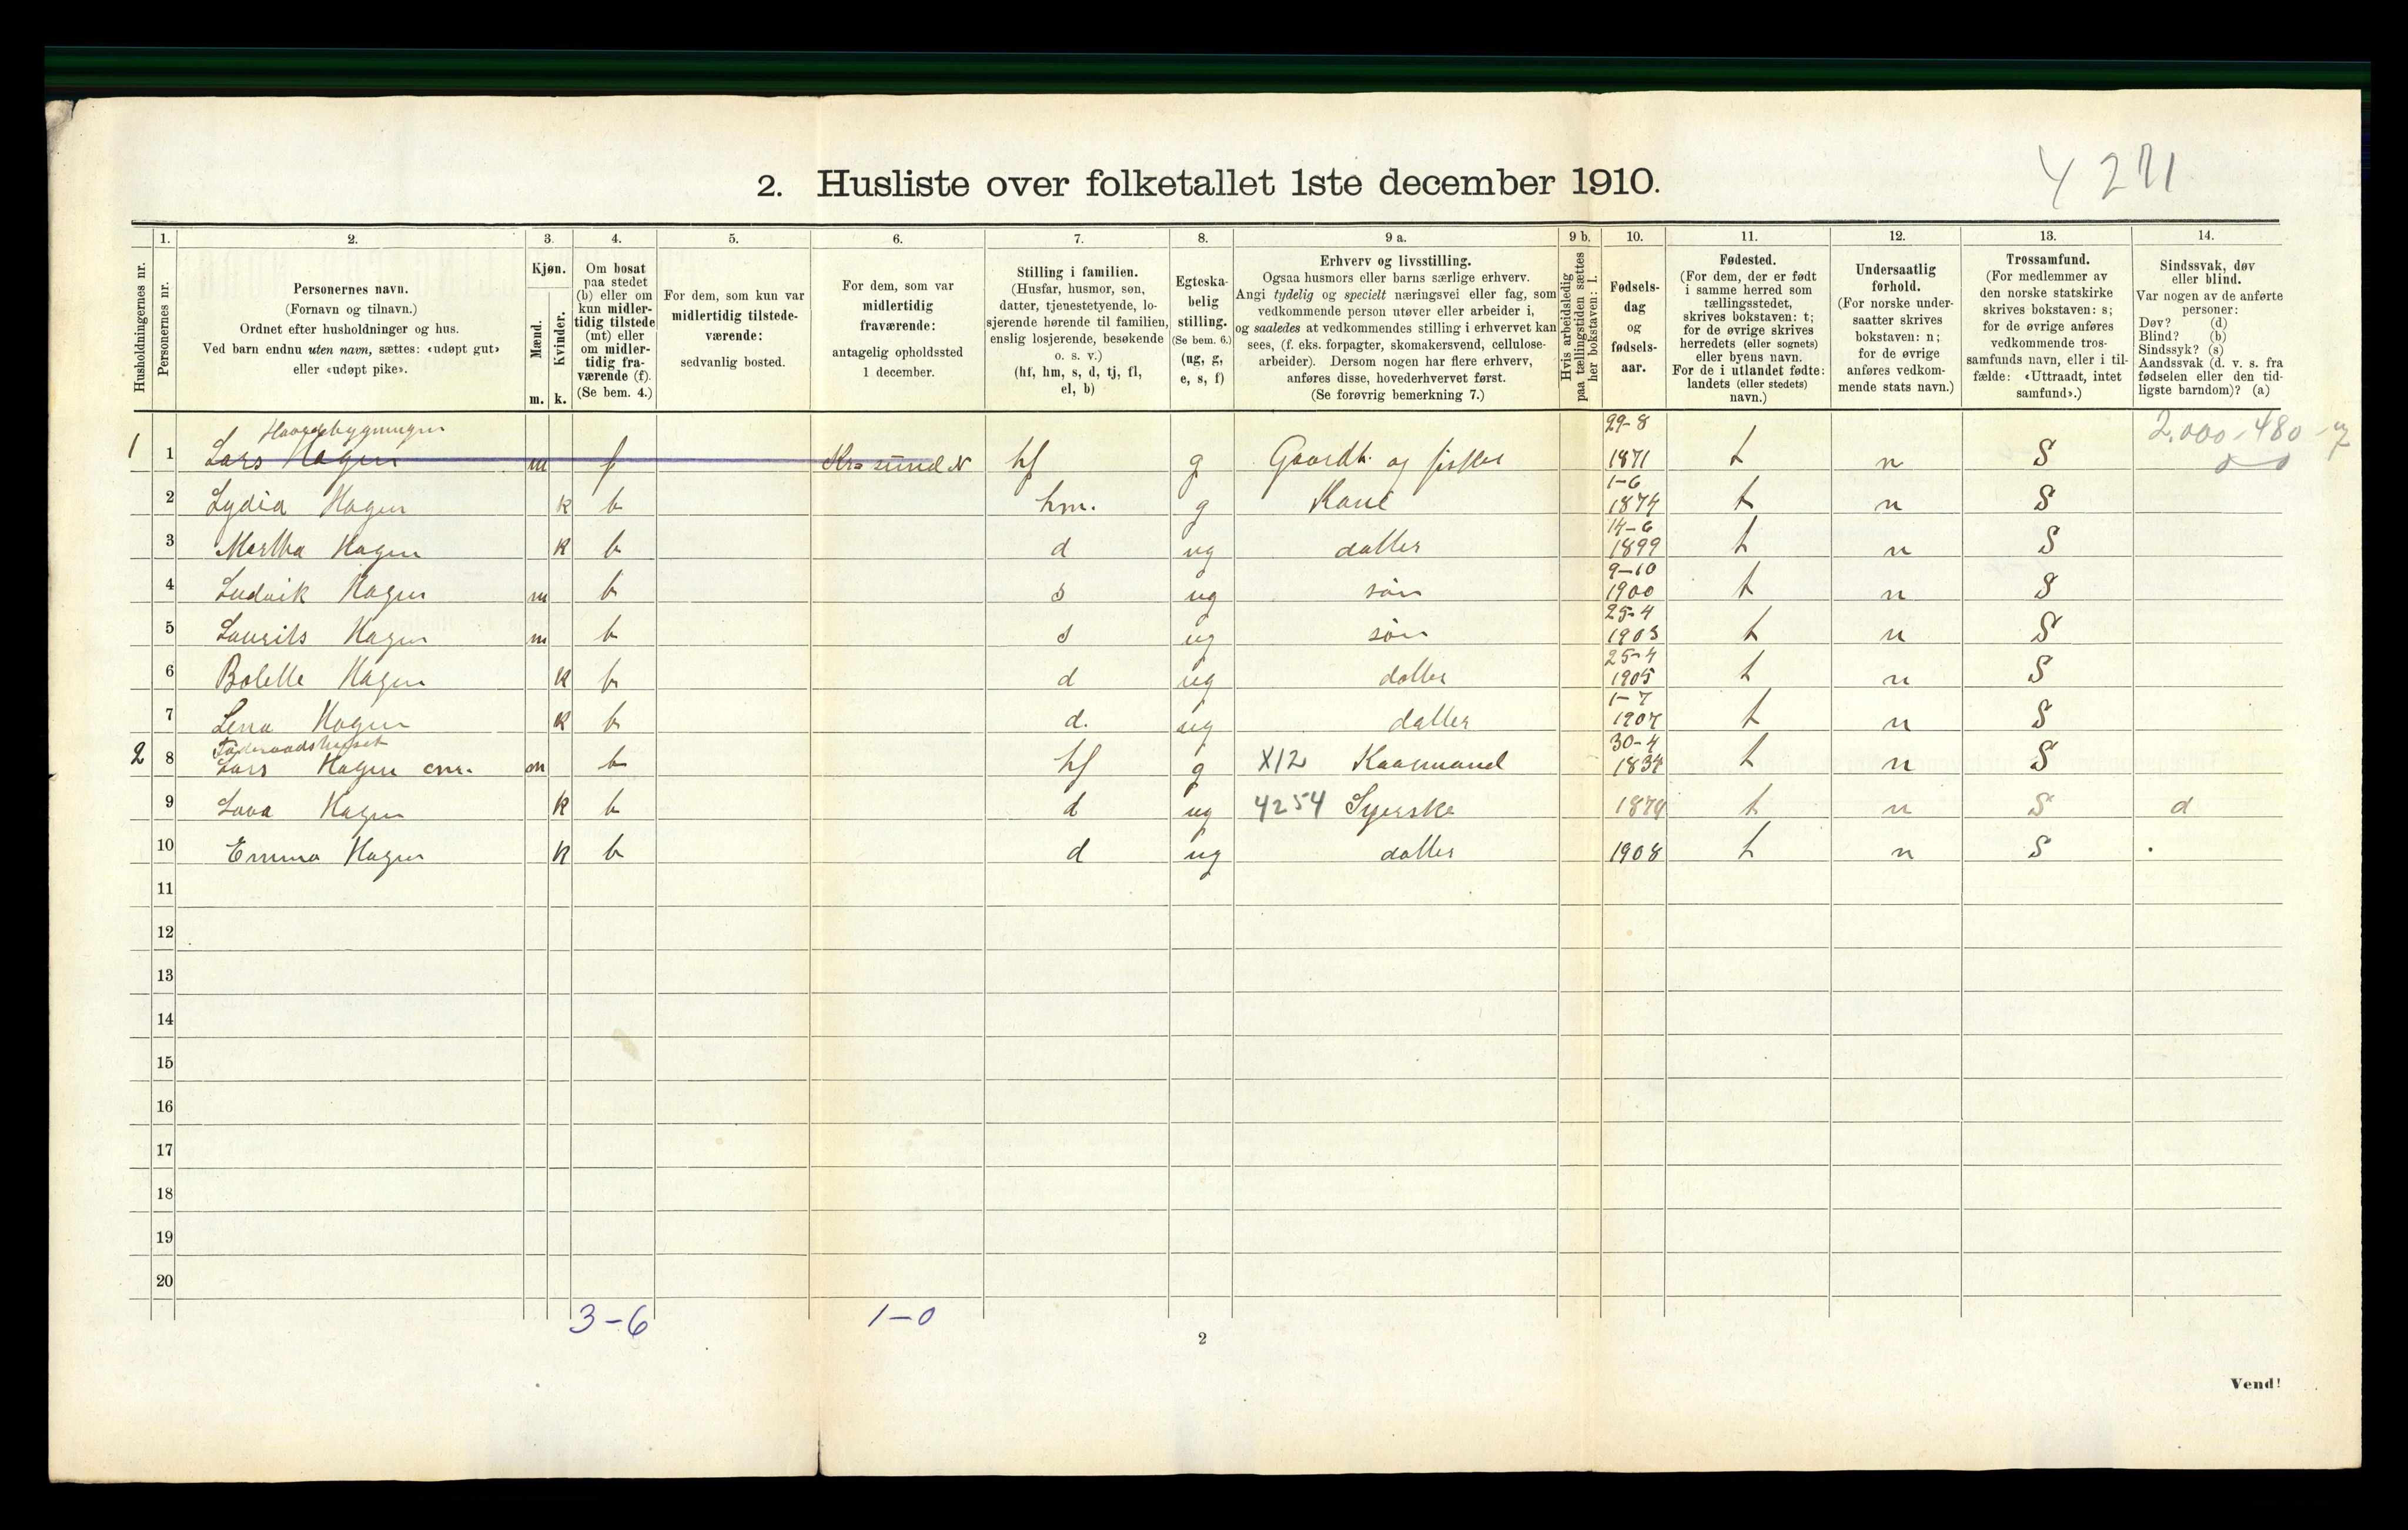 4271
2. Husliste over folketallet 1ste december 1910.
Husholdningernes nr.
1.
Personernes nr.
2.
Personernes navn.
(Fornavn og tilnavn.)
Ordnet efter husholdninger og hus.
Ved barn endnu uten navn, sættes: «udøpt gut»
eller «udøpt pike».
3.
Kjøn.
Mænd.
Kvinder.
m. k.
4.
Om bosat
paa stedet
(b) eller om
kun midler-
tidig tilstede
(mt) eller
om midler-
tidig fra-
værende (f).
(Se bem. 4.)
5.
For dem, som kun var
midlertidig tilstede-
værende:
sedvanlig bosted.
6.
For dem, som var
midlertidig
fraværende:
antagelig opholdssted
1 december.
7.
Stilling i familien.
(Husfar, husmor, søn,
datter, tjenestetyende, lo-
sjerende hørende til familien,
enslig losjerende, besøkende
o. s. v.)
(hf, hm, s, d, tj, fl,
el, b)
8.
Egteska-
belig
stilling.
(Se bem. 6.)
(ug, g,
e, s, f)
9 a.
Erhverv og livsstilling.
Ogsaa husmors eller barns særlige erhverv.
Angi tydelig og specielt næringsvei eller fag, som
vedkommende person utøver eller arbeider i,
og saaledes at vedkommendes stilling i erhvervet kan
sees, (f. eks. forpagter, skomakersvend, cellulose-
arbeider). Dersom nogen har flere erhverv,
anføres disse, hovederhvervet først.
(Se forøvrig bemerkning 7.)
9 b.
Hvis arbeidsledig
paa tællingstiden sættes
her bokstaven: l.
10.
Fødsels-
dag
og
fødsels-
aar.
11.
Fødested.
(For dem, der er født
i samme herred som
tællingsstedet,
skrives bokstaven: t;
for de øvrige skrives
herredets (eller sognets)
eller byens navn.
For de i utlandet fødte:
landets (eller stedets)
navn.)
12.
Undersaatlig
forhold.
(For norske under-
saatter skrives
bokstaven: n;
for de øvrige
anføres vedkom-
mende stats navn.)
13.
Trossamfund.
(For medlemmer av
den norske statskirke
skrives bokstaven: s;
for de øvrige anføres
vedkommende tros-
samfunds navn, eller i til-
fælde: «Uttraadt, intet
samfund».)
14.
Sindssvak, døv
eller blind.
Var nogen av de anførte
personer:
Døv? (d)
Blind? (b)
Sindssyk? (s)
Aandssvak (d. v. s. fra
fødselen eller den tid-
ligste barndom)? (a)
29-8 2.000-480
1 1 Lars Hagen m f Kr.sund N hf g Gaardb. og fisker 1871 t n S
1-6
2 Lydia Hagen k b hm. g Kone 1874 t n S
14-6
3 Martha Hagen k b d ug datter 1899 t n S
9-10
4 Ludvik Hagen m b s ug søn 1900 t n S
25-4
5 Laurits Hagen m b s ug søn 1903 t n S
25-4
6 Bolette Hagen k b d ug datter 1905 t n S
1-7
7 Lena Hagen k b d. ug datter 1907 t n S
30-4
2 8 Lars Hagen m b hf g X12 Kaarmand 1834 t n S
9 Lava Hagen k b d ug 4254 Syerske 1874 t n S d
10 Emma Hagen k b d ug datter 1908 t n S
11
12
13
14
15
16
17
18
19
20
3-6 1-0
2
Vend!